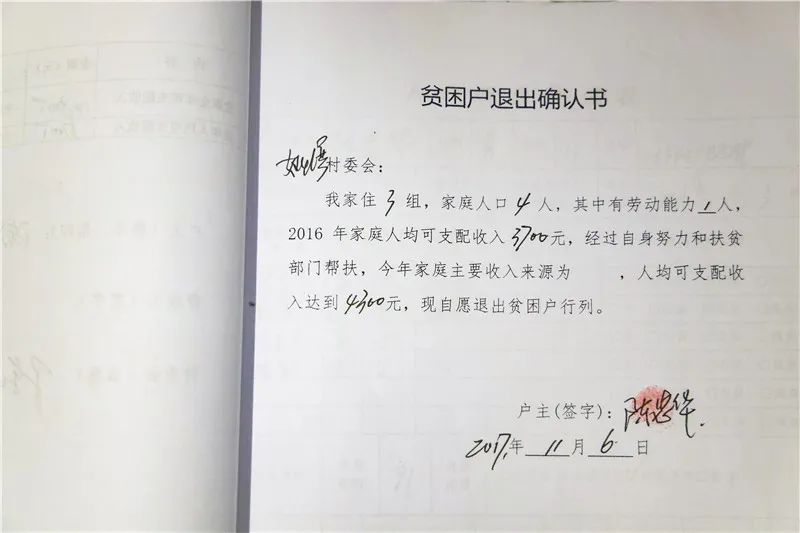 贫困户退出确认书
村委会：
我家住 3 组，家庭人口 4 人，其中有劳动能力 1 人，
2016 年家庭人均可支配收入 3700 元，经过自身努力和扶贫
部门帮扶，今年家庭主要收入来源为 ，人均可支配收
入达到 4300 元，现自愿退出贫困户行列。
户主(签字)：陈忠华
2017年 11 月 6 日